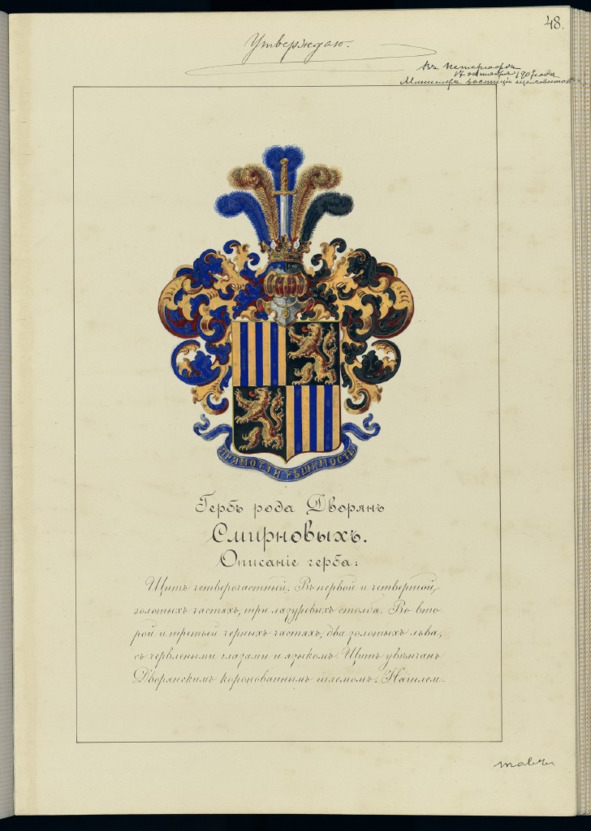 48.
Утверждаю.
въ Петергофѣ
октября 1907 года
Министръ Юстиціи Щегловитовъ
ПРЯМОТА И РѢШИМОСТЬ
Гербъ рода Дворянъ
Смирновыхъ.
Описаніе герба:
Щитъ четверочастный. Въ первой и четвертой,
золотыхъ частяхъ, три лазуревыхъ столба. Во вто-
рой и третьей черныхъ частяхъ, два золотыхъ льва,
съ червлеными глазами и языкомъ. Щитъ увѣнчанъ
Дворянскимъ коронованнымъ шлемомъ. Нашлем-